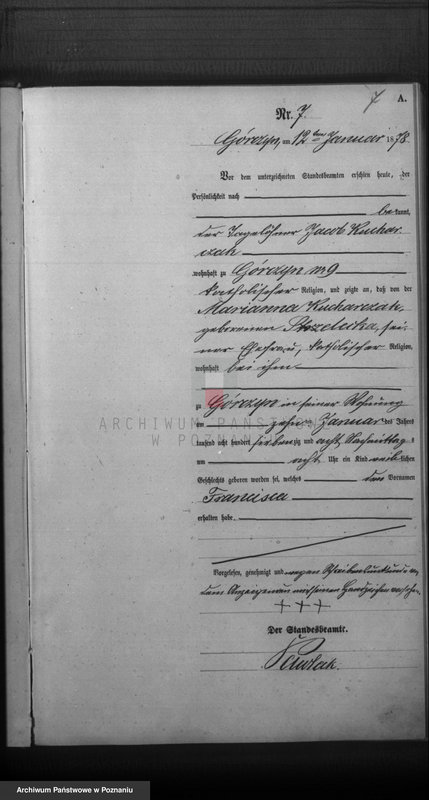 7 A.
Nr. 7.
Górczyn, am 12 ten Januar 1878
Vor dem unterzeichneten Standesbeamten erschien heute, der
Persönlichkeit nach
bekannt,
der Tagelöhner Jacob Kuchar
czak
wohnhaft zu Górczyn No 9
katholischer Religion, und zeigte an, daß von der
Marianna Kucharczak,
geborenen Strzelecka, sei-
ner Ehefrau, katholischer Religion,
wohnhaft bei ihm
zu Górczyn in seiner Wohnung
am zehn ten Januar des Jahres
tausend acht hundert siebenzig und acht Nachmittags
um acht Uhr ein Kind weiblichen
Geschlechts geboren worden sei, welches den Vornamen
Francisca
erhalten habe.
Vorgelesen, genehmigt und wegen Schreibensunkunde von
dem Anzeigenden mit seinem Handzeichen versehen.
+++
Der Standesbeamte.
Pawlak.
ARCHIWUM PAŃSTWOWE
W POZNANIU
Archiwum Państwowe w Poznaniu